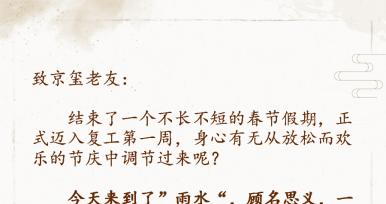 致京玺老友：
结束了一个不长不短的春节假期，正
式迈入复工第一周，身心有无从放松而欢
乐的节庆中调节过来呢？
今天来到了”雨水“，顾名思义，一